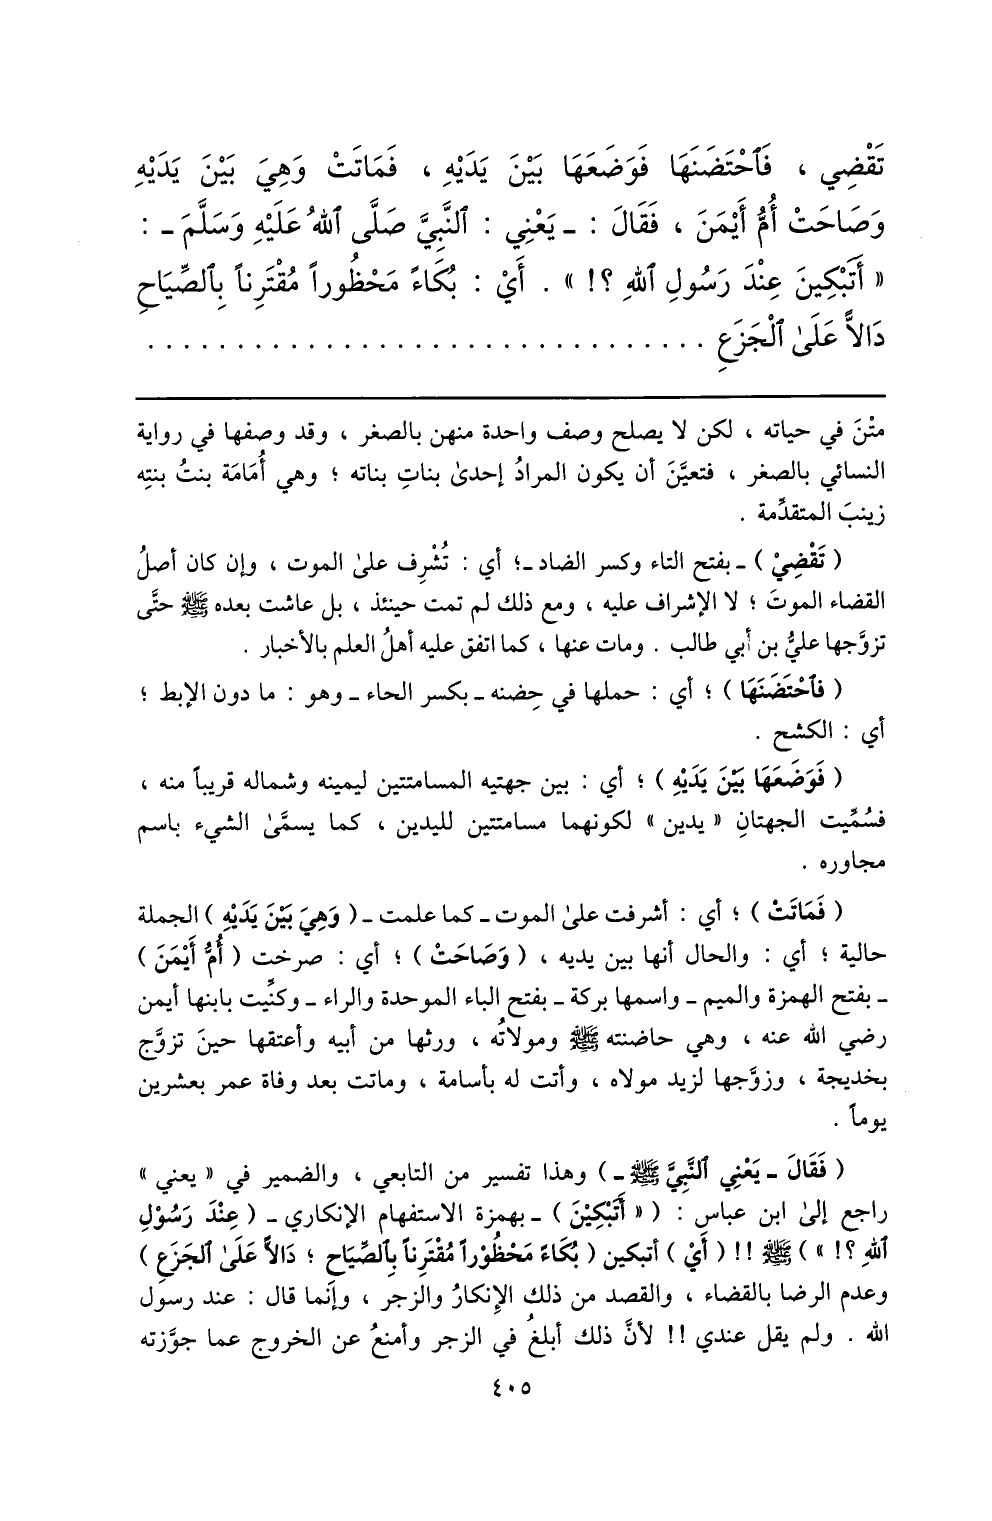 تَقْضِي ، فَٱحْتَضَنَهَا فَوَضَعَهَا بَيْنَ يَدَيْهِ ، فَمَاتَتْ وَهِيَ بَيْنَ يَدَيْهِ
وَصَاحَتْ أُمُّ أَيْمَنَ ، فَقَالَ : ـ يَعْنِي : ٱلنَّبِيَّ صَلَّى ٱللهُ عَلَيْهِ وَسَلَّمَ ـ :
« أَتَبْكِينَ عِنْدَ رَسُولِ ٱللهِ ؟! » . أَيْ : بُكَاءً مَحْظُوراً مُقْتَرِناً بِٱلصِّيَاحِ
دَالاًّ عَلَىٰ ٱلْجَزَعِ . . . . . . . . . . . . . . . . . . . . . . . . . . . . . . . .
متْنَ في حياته ، لكن لا يصلح وصف واحدة منهن بالصغر ، وقد وصفها في رواية
النسائي بالصغر ، فتعيَّنَ أن يكون المرادُ إحدىٰ بناتِ بناته ؛ وهي أُمَامَة بنتُ بنتِه
زينبَ المتقدِّمة .
( تَقْضِيْ ) ـ بفتح التاء وكسر الضاد ـ؛ أي : تُشْرِف علىٰ الموت ، وإن كان أصلُ
القضاء الموتَ ؛ لا الإشراف عليه ، ومع ذلك لم تمت حينئذ ، بل عاشت بعده ﷺ حتَّى
تزوَّجها عليُّ بن أبي طالب . ومات عنها ، كما اتفق عليه أهلُ العلم بالأخبار .
( فٱحْتَضَنَهَا ) ؛ أي : حملها في حِضنه ـ بكسر الحاء ـ وهو : ما دون الإبط ؛
أي : الكشح .
( فَوَضَعَهَا بَيْنَ يَدَيْهِ ) ؛ أي : بين جهتيه المسامتتين ليمينه وشماله قريباً منه ،
فسُمِّيت الجهتانِ « يدين » لكونهما مسامتتين لليدين ، كما يسمَّىٰ الشيء باسم
مجاوره .
( فَمَاتَتْ ) ؛ أي : أشرفت علىٰ الموت ـ كما علمت ـ ( وَهِيَ بَيْنَ يَدَيْهِ ) الجملة
حالية ؛ أي : والحال أنها بين يديه ، ( وَصَاحَتْ ) ؛ أي : صرخت ( أُمُّ أَيْمَنَ )
ـ بفتح الهمزة والميم ـ واسمها بركة ـ بفتح الباء الموحدة والراء ـ وكنِّيت بابنها أيمن
رضي الله عنه ، وهي حاضنته ﷺ ومولاتُه ، ورثها من أبيه وأعتقها حينَ تزوَّج
بخديجة ، وزوَّجها لزيد مولاه ، وأتت له بأسامة ، وماتت بعد وفاة عمر بعشرين
يوماً .
( فَقَالَ ـ يَعْنِي ٱلنَّبِيَّ ﷺ ـ ) وهذا تفسير من التابعي ، والضمير في « يعني »
راجع إلىٰ ابن عباس : ( « أَتَبْكِيْنَ ) ـ بهمزة الاستفهام الإنكاري ـ ( عِنْدَ رَسُوْلِ
ٱللهِ ؟! » ) ﷺ !! ( أَيْ ) أتبكين ( بُكَاءً مَحْظُوْراً مُقْتَرِناً بِٱلصِّيَاحِ ؛ دَالاًّ عَلَىٰ ٱلجَزَعِ )
وعدم الرضا بالقضاء ، والقصد من ذلك الإنكارُ والزجر ، وإنما قال : عند رسول
الله . ولم يقل عندي !! لأنَّ ذلك أبلغُ في الزجر وأمنعُ عن الخروج عما جوَّزته
٤٠٥